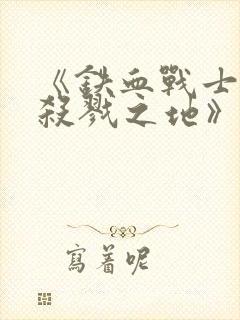 《鉄血戰士
殺戮之地》
寫着呢